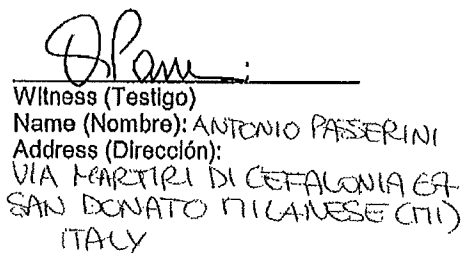 Witness (Testigo)
Name (Nombre): ANTONIO PASSERINI
Address (Dirección):
VIA MARTIRI DI CEFALONIA
SAN DONATO MILANESE (MI)
ITALY